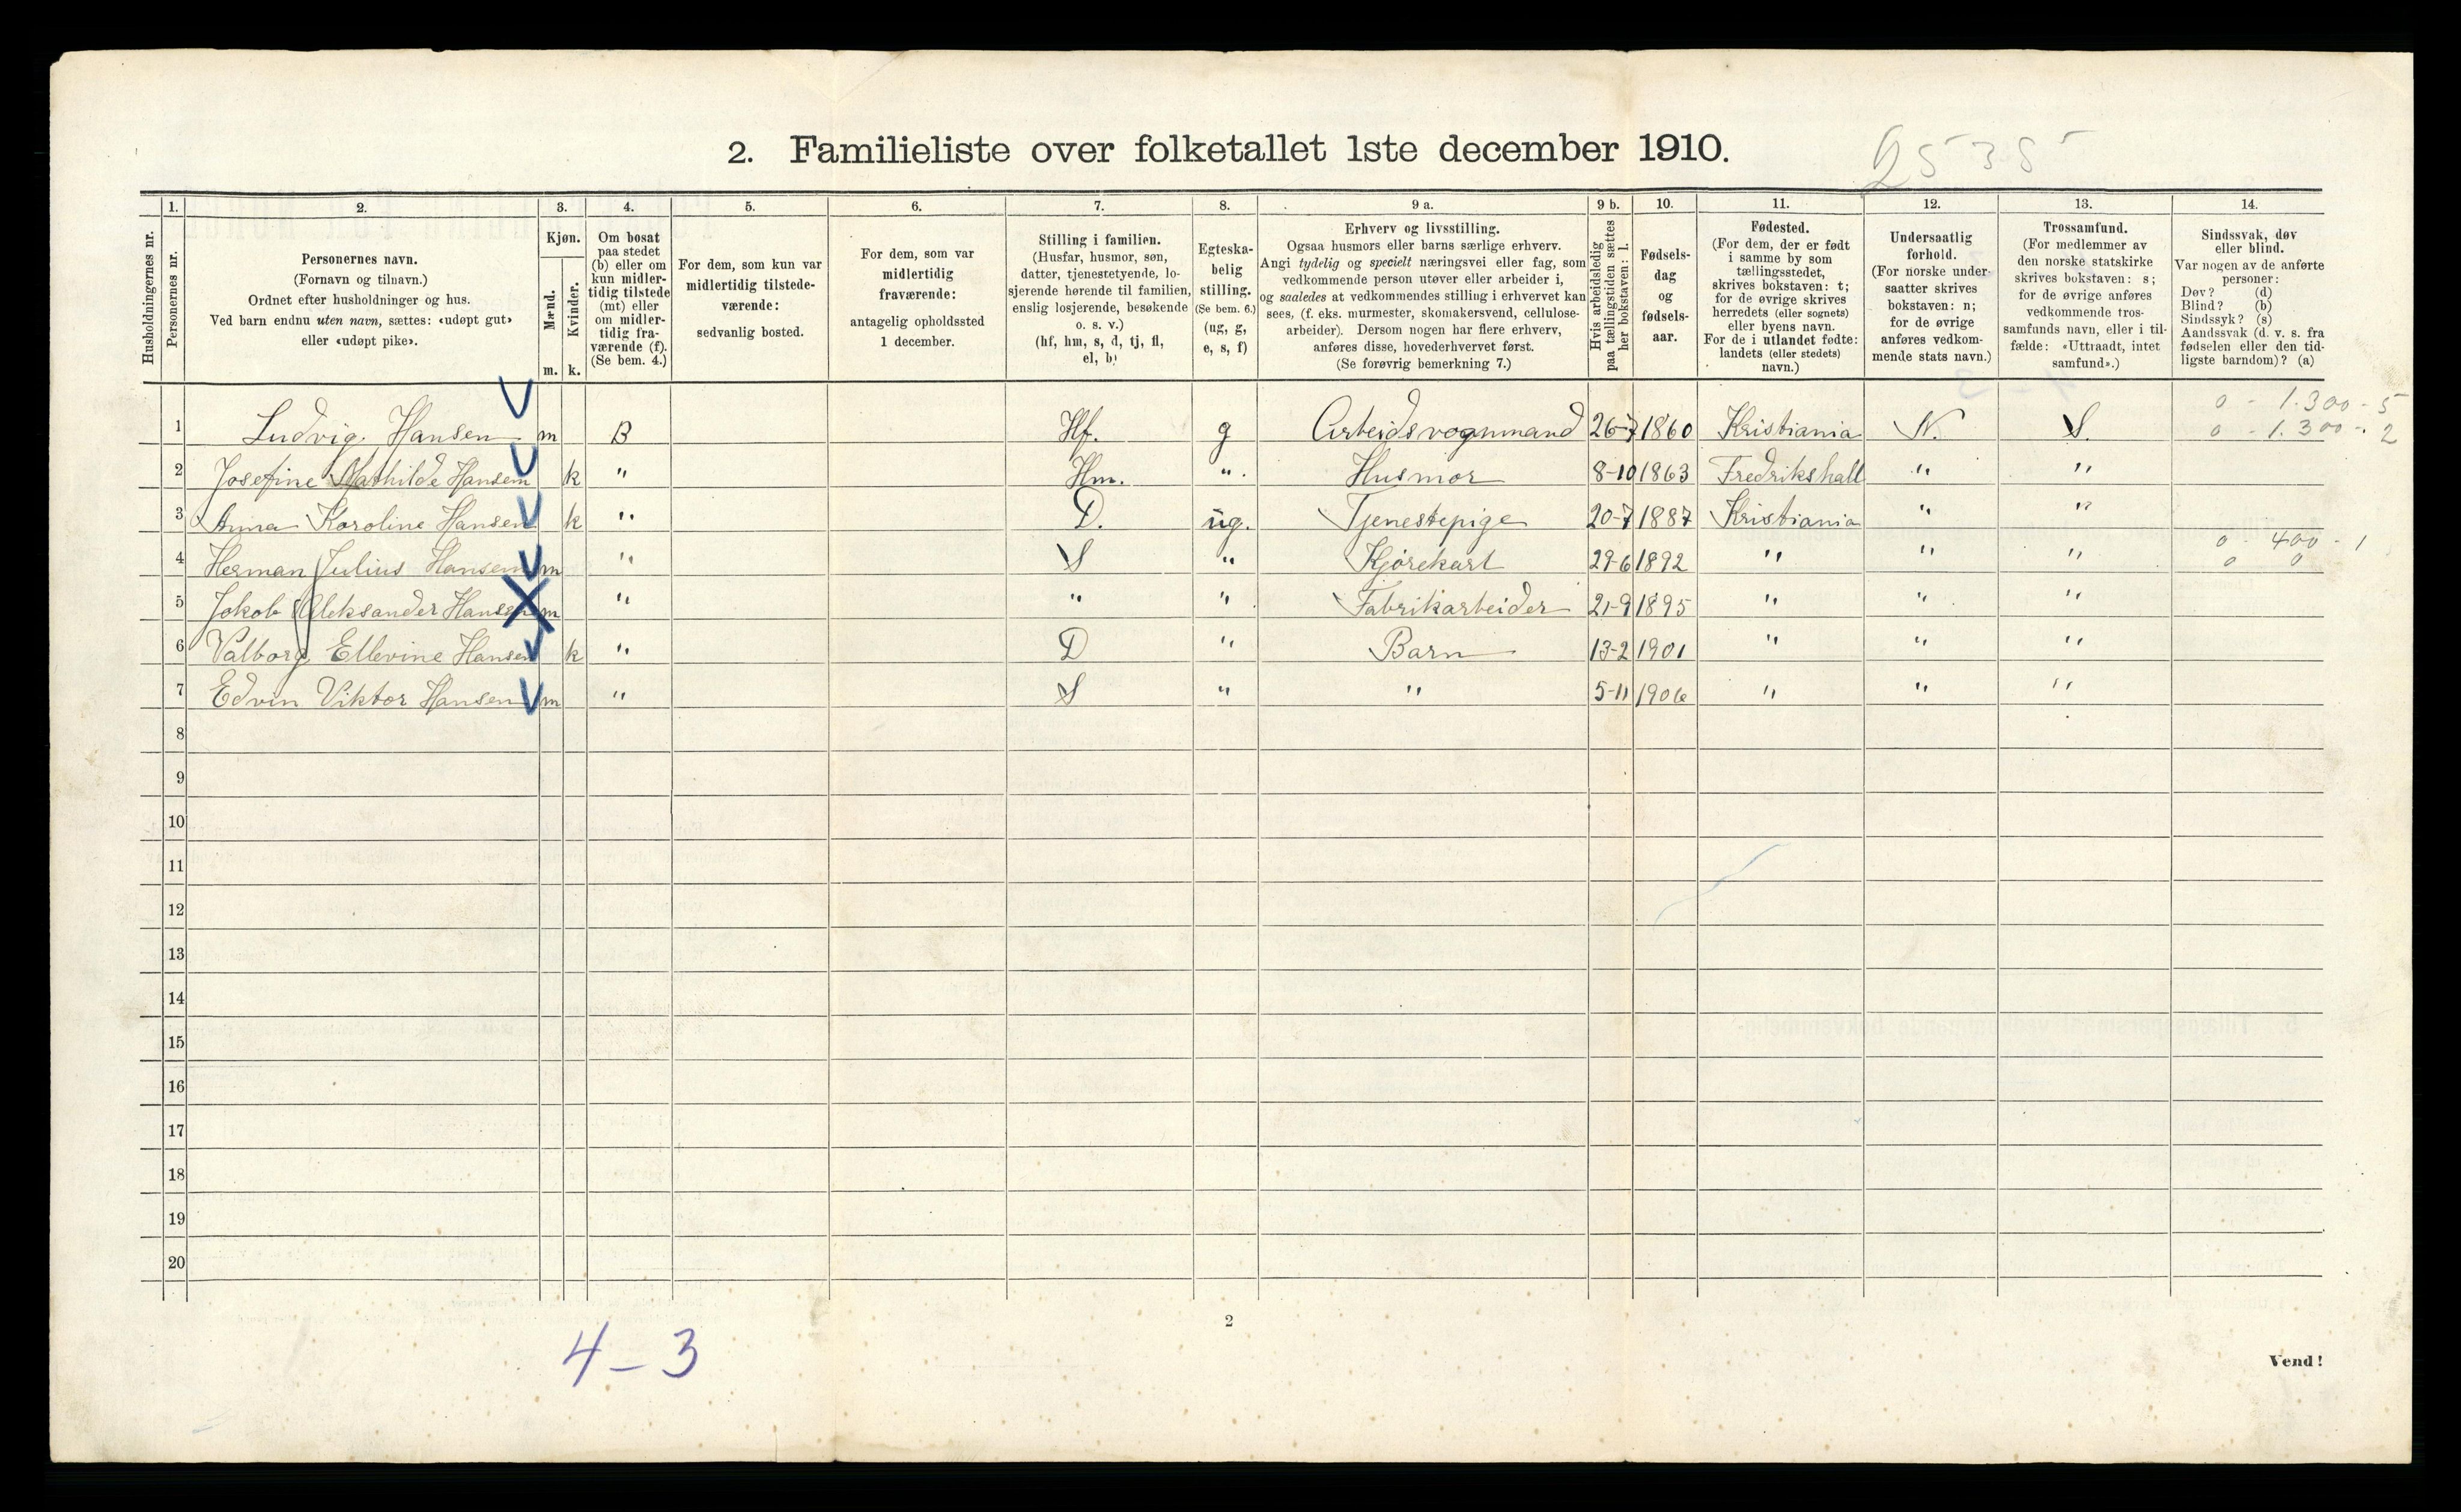 2. Familieliste over folketallet 1ste december 1910.
25 35
1. 2. 3. 4. 5. 6. 7. 8. 9 a. 9 b. 10. 11. 12. 13. 14.
Husholdningernes nr.
Personernes nr.
Personernes navn.
(Fornavn og tilnavn.)
Ordnet efter husholdninger og hus.
Ved barn endnu uten navn, sættes: «udøpt gut»
eller «udøpt pike».
Kjøn.
Mænd.
Kvinder.
m. k.
Om bosat
paa stedet
(b) eller om
kun midler-
tidig tilstede
(mt) eller
om midler-
tidig fra-
værende (f).
(Se bem. 4.)
For dem, som kun var
midlertidig tilstede-
værende:
sedvanlig bosted.
For dem, som var
midlertidig
fraværende:
antagelig opholdssted
1 december.
Stilling i familien.
(Husfar, husmor, søn,
datter, tjenestetyende, lo-
sjerende hørende til familien,
enslig losjerende, besøkende
o. s. v.)
(hf, hm, s, d, tj, fl,
el, b)
Egteska-
belig
stilling.
(Se bem. 6.)
(ug, g,
e, s, f)
Erhverv og livsstilling.
Ogsaa husmors eller barns særlige erhverv.
Angi tydelig og specielt næringsvei eller fag, som
vedkommende person utøver eller arbeider i,
og saaledes at vedkommendes stilling i erhvervet kan
sees, (f. eks. murmester, skomakersvend, cellulose-
arbeider). Dersom nogen har flere erhverv,
anføres disse, hovederhvervet først.
(Se forøvrig bemerkning 7.)
Hvis arbeidsledig
paa tællingstiden sættes
her bokstaven: l.
Fødsels-
dag
og
fødsels-
aar.
Fødested.
(For dem, der er født
i samme by som
tællingsstedet,
skrives bokstaven: t;
for de øvrige skrives
herredets (eller sognets)
eller byens navn.
For de i utlandet fødte:
landets (eller stedets)
navn.)
Undersaatlig
forhold.
(For norske under-
saatter skrives
bokstaven: n;
for de øvrige
anføres vedkom-
mende stats navn.)
Trossamfund.
(For medlemmer av
den norske statskirke
skrives bokstaven: s;
for de øvrige anføres
vedkommende tros-
samfunds navn, eller i til-
fælde: «Uttraadt, intet
samfund».)
Sindssvak, døv
eller blind.
Var nogen av de anførte
personer:
Døv? (d)
Blind? (b)
Sindssyk? (s)
Aandssvak (d. v. s. fra
fødselen eller den tid-
ligste barndom)? (a)
0 - 1.300 - 5
1 Ludvig Hansen m B Hf. g Arbeidsvognmand 26-7 1860 Kristiania N. S. 0 - 1.300 - 2
2 Josefine Mathilde Hansen k " Hm. " Husmor 8-10 1863 Fredrikshall " "
3 Anna Karoline Hansen k " D. ug. Tjenestepige 20-7 1887 Kristiania " "
0 - 400 - 1
4 Herman Julius Hansen m " S " Kjørekarl 29-6 1892 " " " 0 0
5 Jakob Aleksander Hansen m " " " Fabrikarbeider 21-9 1895 " " "
6 Valborg Ellevine Hansen k " D " Barn 13-2 1901 " " "
7 Edvin Viktor Hansen m " S " " 5-11 1906 " " "
8
9
10
11
12
13
14
15
16
17
18
19
20
2
4-3
Vend!